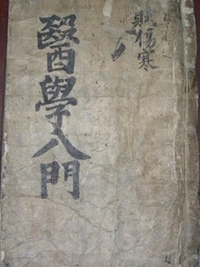 傷寒
醫學入門